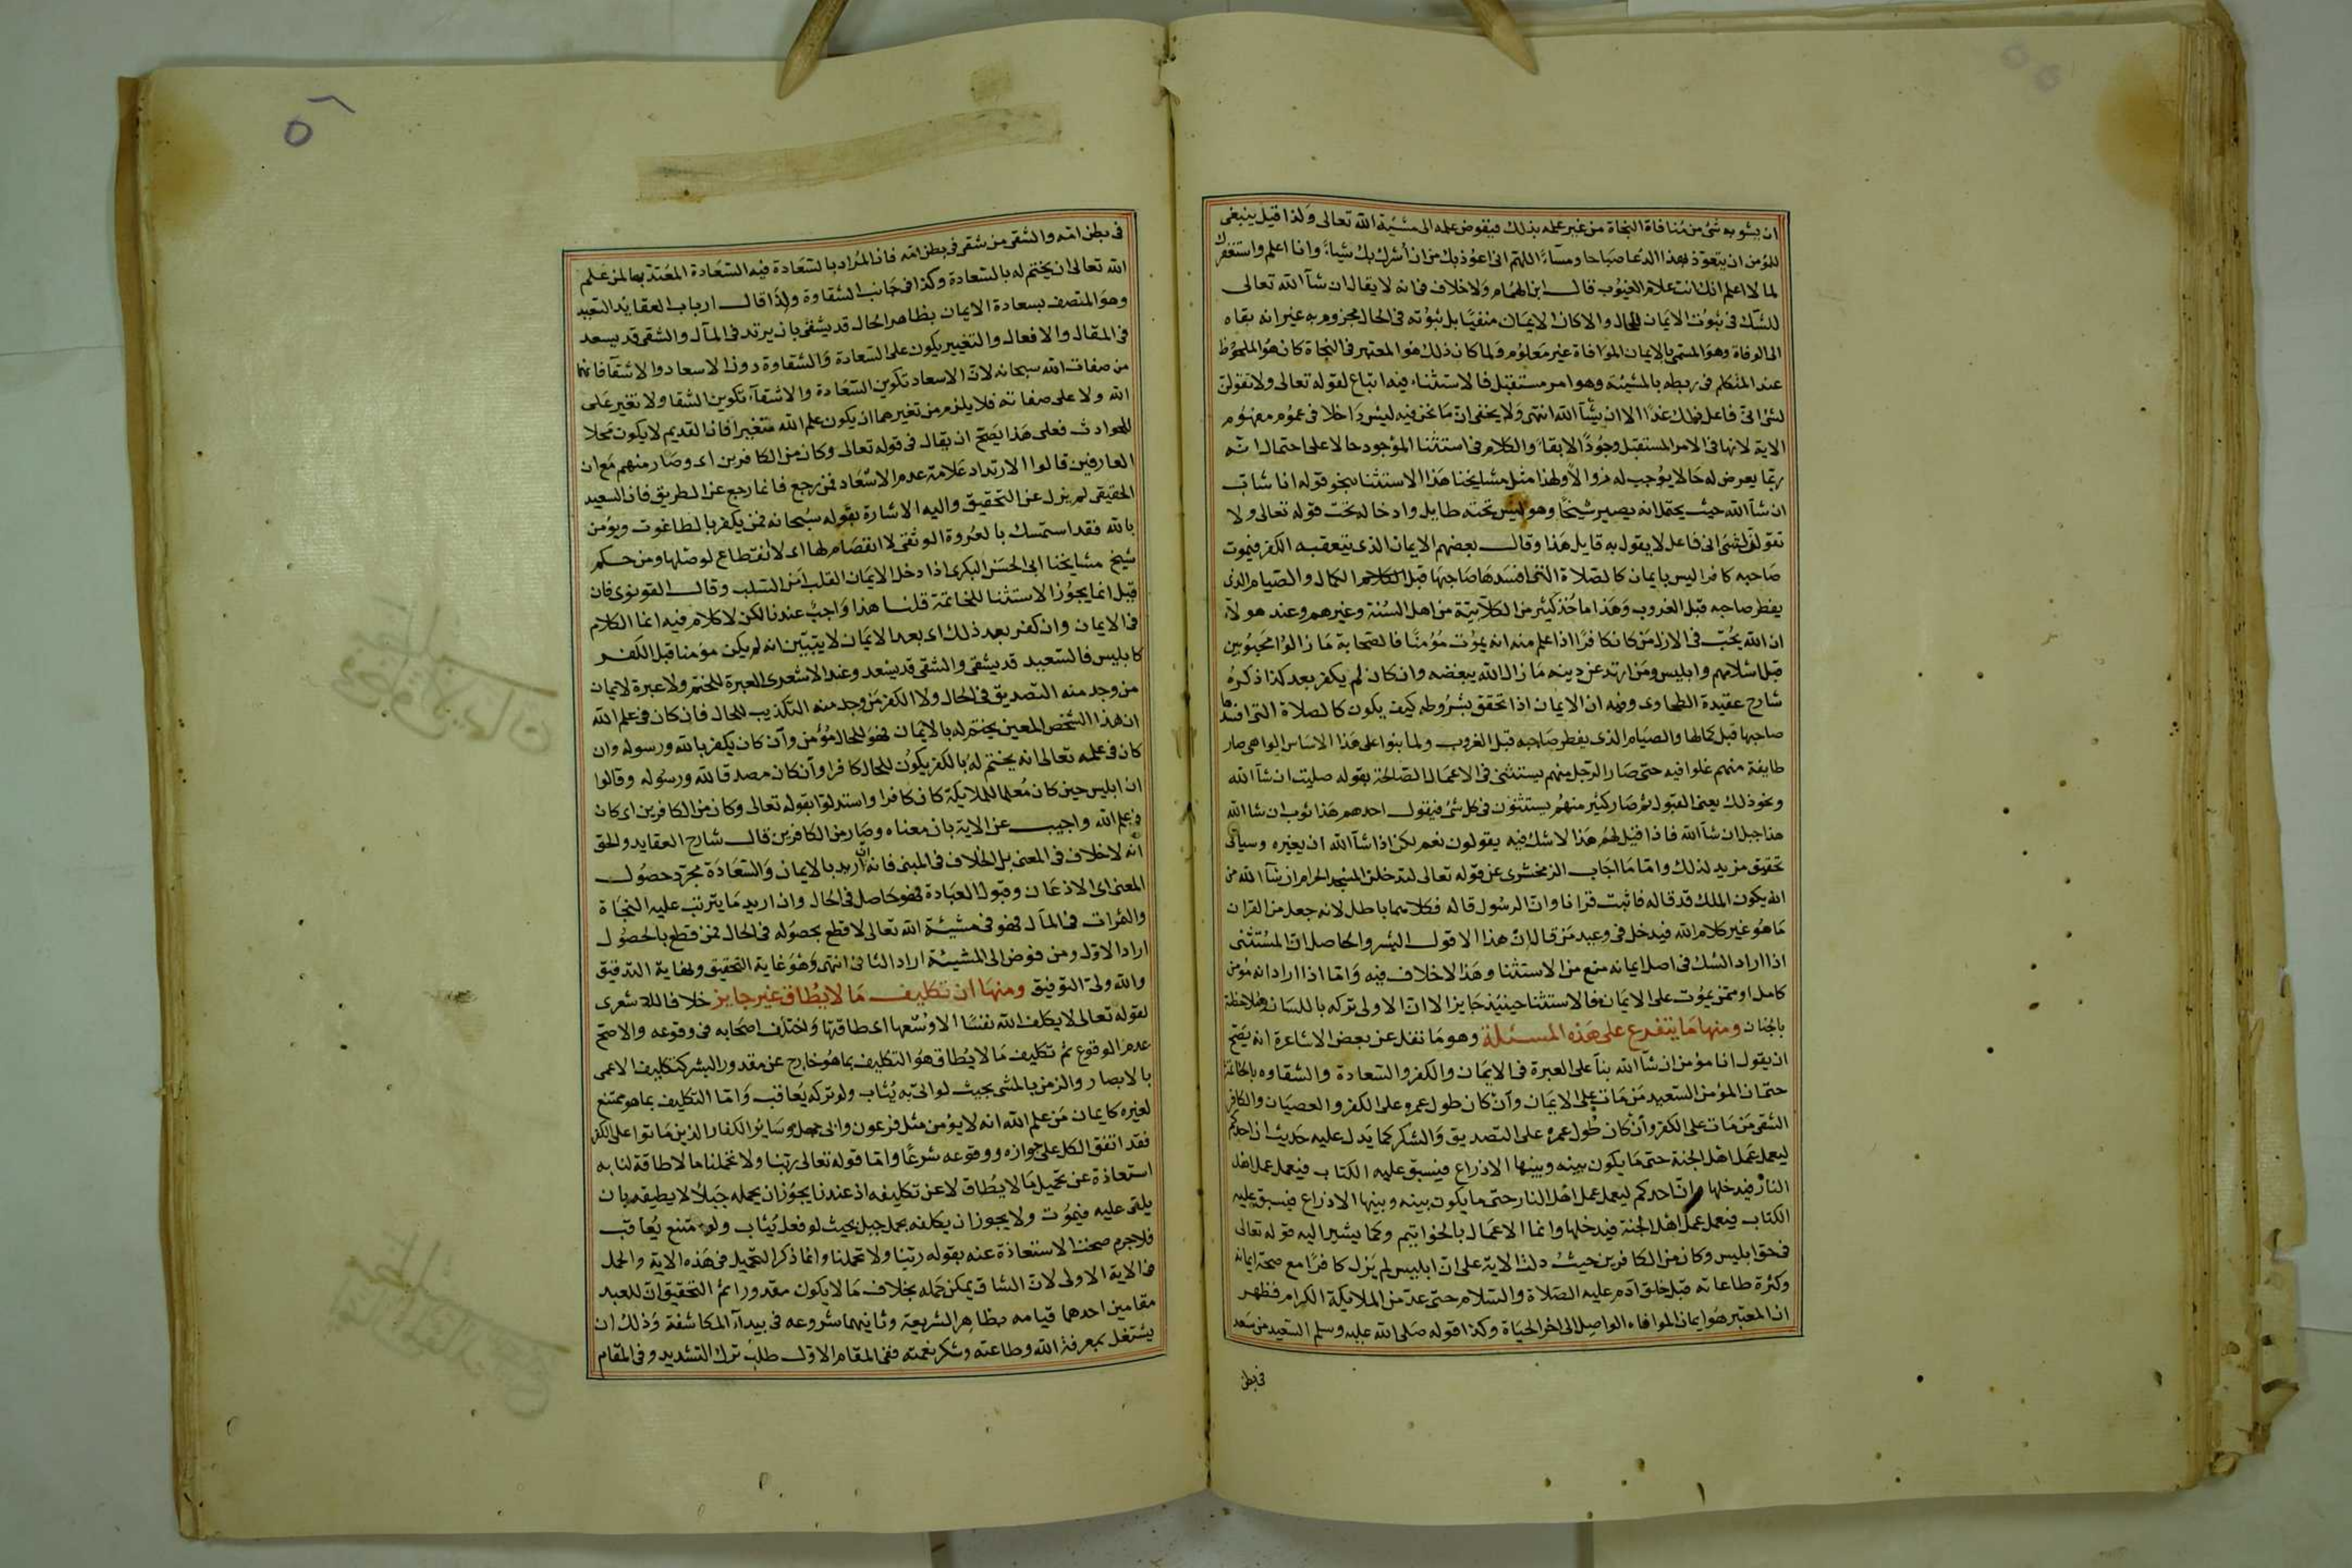 ان يشوبه شئ من منافاة النجاة من غير علمه بذلك فيفوض علمه الى مشيئة الله تعالى ولذا قيل ينبغى
للمؤمن ان يتعوذ بهذا الدعا صباحا ومسآءً اللهم انى اعوذ بك من ان أشرك بك شياءً وانا اعلم واستغفرك
لما لا اعلم انك انت علام الغيوب قال ابن الهمام ولا خلاف فى انه لا يقال ان شآ الله تعالى
للشك فى ثبوت الايمان للحال والا كان الايمان منفيا بل ثبوته فى الحال مجزوم به غير انه بقاه
الى الوفاة وهو المسمى بالايمان الموافاة غير معلوم ولما كان ذلك هو المعتبر فى النجاة كان هو الملحوظ
عند المتكلم فى ربطه بالمشيئة وهو امر مستقبل فالاستثناء فيه اتباع لقوله تعالى ولا تقولن
لشئ انى فاعل ذلك غدا الا ان يشآ الله انتهى ولا يخفى ان ما نحن فيه ليس داخلا فى عموم مفهوم
الاية لانها فى الامر المستقبل وجودًا لا بقاءً والكلام فى استثنا الموجود حالا على احتمال انه
ربما يعرض له حالا يوجب له زوالاً ولهذا مثل مشايخنا هذا الاستثنا بنحو قوله انا شاب
ان شآ الله حيث يحتمل انه يصير شيخًا وهو ليس تحته طايل وادخاله تحت قوله تعالى ولا
تقولن لشئ انى فاعل لا يقول به قايل هذا وقال بعضهم الايمان الذى يتعقبه الكفر فيموت
صاحبه كافرا ليس بايمان كالصلاة التى افسدها صاحبها قبل الكمال والصيام الذى
يفطر صاحبه قبل الغروب وهذا ماخذ كثير من الكلابية من اهل السنة وغيرهم وعند هولآء
ان الله يحب فى الازل من كان كافرًا اذا علم منه انه يموت مؤمنًا فالصحابة ما زالوا محبوبين
قبل اسلامهم وابليس ومن ارتد عن دينه ما زال الله يبغضه وان كان لم يكفر بعد كذا ذكره
شارح عقيدة الطحاوى وفيه ان الايمان اذا تحقق بشروطه كيف يكون كالصلاة التى افسدها
صاحبها قبل كمالها والصيام الذى يفطر صاحبه قبل الغروب ولما بنوا على هذا الاساس الواهى صار
طايفة منهم غلوا فيه حتى صار الرجل منهم يستثنى فى الاعمال الصالحة بقوله صليت ان شآ الله
ونحو ذلك يعنى القبول ثم صار كثير منهم يستثنون فى كل شئ فيقول احدهم هذا ثوب ان شا الله
هذا جبل ان شآ الله فاذا قيل لهم هذا لا شك فيه يقولون نعم لكن اذا شآ الله ان يغيره وسياتى
تحقيق مزيد لذلك واما ما اجاب الزمخشرى عن قوله تعالى لتدخلن المسجد الحرام ان شآ الله من
انه يكون الملك قد قاله فاثبت قرانا وان الرسول قاله فكلاهما باطل لانه جعل من القران
ما هو غير كلام الله فيدخل فى وعيد من قال ان هذا الا قول البشر والحاصل ان المستثنى
اذا اراد الشك فى اصل ايمانه منع من الاستثنا وهذا لا خلاف فيه واما اذا اراد انه مؤمن
كامل او ممن يموت على الايمان فالاستثنا حينيذ جايز الا ان الاولى تركه باللسان وملاحظته
بالجنان ومنها ما يتفرع على هذه المسئلة وهو ما نقل عن بعض الاشاعرة انه يصح
ان يقول انا مؤمن ان شآ الله بنآ على العبرة فى الايمان والكفر والسعادة والشقاوه بالخاتمة
حتى ان المؤمن السعيد من مات على الايمان وان كان طول عمره على الكفر والعصيان والكافر
الشقى من مات على الكفر وان كان طول عمره على التصديق والشكر كما يدل عليه حديث ان احدكم
ليعمل عمل اهل الجنة حتى ما يكون بينه وبينها الا ذراع فيسبق عليه الكتاب فيعمل عمل اهل
النار فيدخلها وان احدكم ليعمل عمل اهل النار حتى ما يكون بينه وبينها الا ذراع فيسبق عليه
الكتاب فيعمل عمل اهل الجنة فيدخلها وانما الاعمال بالخواتيم وكما يشير اليه قوله تعالى
فى حق ابليس وكان من الكافرين حيث دلت الاية على ان ابليس لم يزل كافرًا مع صحة ايمانه
وكثرة طاعاته قبل خلق آدم عليه الصلاة والسلام حتى عد من الملايكة الكرام فظهر
ان المعتبر هو ايمان الموافاه الواصل الى اخر الحياة وكذا قوله صلى الله عليه وسلم السعيد من سعد
فى بطن
فى بطن امه والشقى من شقى فى بطن امه فان المراد بالسعادة فيه السعادة المعتد بها لمن علم
الله تعالى ان يختم له بالسعادة وكذا فى جانب الشقاوة ولذا قال ارباب العقايد السعيد
وهو المتصف بسعادة الايمان بظاهر الحال قد يشقى بان يرتد فى المآل والشقى قد يسعد
فى المقال والافعال والتغيير يكون على السعادة والشقاوة دون الاسعاد والاشقآ فانهما
من صفات الله سبحانه لان الاسعاد تكوين السعادة والاشقآء تكوين الشقا ولا تغير على
الله ولا على صفاته فلا يلزم من تغيرهما ان يكون علم الله متغيرا فان القديم لا يكون محلا
للحوادث فعلى هذا يصح ان يقال فى قوله تعالى وكان من الكافرين اى وصار منهم مع ان
العارفين قالوا الارتداد علامة عدم الاسعاد فمن رجع فانما رجع عن الطريق فان السعيد
الحقيقى لم يزل عن التحقيق واليه الاشارة بقوله سبحانه فمن يكفر بالطاغوت ويؤمن
بالله فقد استمسك بالعروة الوثقى لا انفصام لها اى لا انقطاع لوصلها ومن حكم
شيخ مشايخنا ابى الحسن البكرى اذا دخل الايمان القلب امن السلب وقال القونوى فان
قيل انما يجوز الاستثنا للخاتمة قلنا هذا واجب عندنا لكن لا كلام فيه انما الكلام
فى الايمان وان كفر بعد ذلك اى بعد الايمان لا يتبين انه لم يكن مؤمنا قبل الكفر
كابليس فالسعيد قد يشقى والشقى قد يسعد وعند الاشعرى العبرة للختم ولا عبرة لايمان
من وجد منه التصديق فى الحال ولا الكفر من وجد منه التكذيب للحال فان كان فى علم الله
ان هذا الشخص المعين يختم له بالايمان فهو للحال مؤمن وان كان يكفر بالله ورسوله وان
كان فى علمه تعالى انه يختم له بالكفر يكون للحال كافرا وان كان مصدقا لله ورسوله وقالوا
ان ابليس حين كان معلما للملايكة كان كافرا واستدلوا بقوله تعالى وكان من الكافرين اى كان
فى علم الله واجيب عن الاية بان معناه وصار من الكافرين قال شارح العقايد والحق
انه لا خلاف فى المعنى بل الخلاف فى المبنى فانه ان اريد بالايمان والسعادة مجرد حصول
المعنى اى الاذعان وقبول العبادة فهو حاصل فى الحال وان اريد ما يترتب عليه النجاة
والثمرات فى المآل فهو فى مشيئة الله تعالى لا قطع بحصوله فى الحال فمن قطع بالحصول
اراد الاول ومن فوض الى المشيئة اراد الثانى انتهى وهو غاية التحقيق ونهاية التدقيق
والله ولى التوفيق ومنها ان تكليف ما لا يطاق غير جايز خلافا للاشعرى
لقوله تعالى لا يكلف الله نفسًا الا وسعها اى طاقتها واختلف اصحابه فى وقوعه والاصح
عدم الوقوع ثم تكليف ما لا يطاق هو التكليف بما هو خارج عن مقدور البشر كتكليف الاعمى
بالابصار والزمن بالمشى بحيث لو اتى به يثاب ولو تركه يعاقب واما التكليف بما هو ممتنع
لغيره كايمان من علم الله انه لا يؤمن مثل فرعون وابى جهل وسائر الكفار الذين ماتوا على الكفر
فقد اتفق الكل على جوازه ووقوعه شرعًا واما قوله تعالى ربنا ولا تحملنا ما لا طاقة لنا به
استعاذة عن تحميل ما لا يطاق لا عن تكليفه اذ عندنا يجوز ان يحمله جبلاً لا يطيقه بان
يلقى عليه فيموت ولا يجوز ان يكلفه بحمل جبل بحيث لو فعل يثاب ولو امتنع يعاقب
فلا جرم صحت الاستعاذة عنه بقوله ربنا ولا تحملنا وانما ذكر التحميل فى هذه الاية والحمل
فى الاية الاولى لان الشاق يمكن حمله بخلاف ما لا يكون مقدورا ثم التحقيق ان للعبد
مقامين احدهما قيامه بظاهر الشريعة وثانيهما شروعه فى بيدآء المكاشفة وذلك ان
يشتغل بمعرفة الله وطاعته وشكر نعمته ففى المقام الاول طلب ترك التشديد وفى المقام